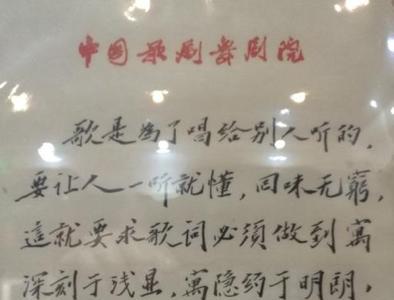 中国歌剧舞剧院
歌是為了唱给别人听的，
要让人一听就懂，回味无窮，
這就要求歌词必须做到寓
深刻于浅显，寓隐约于明朗，